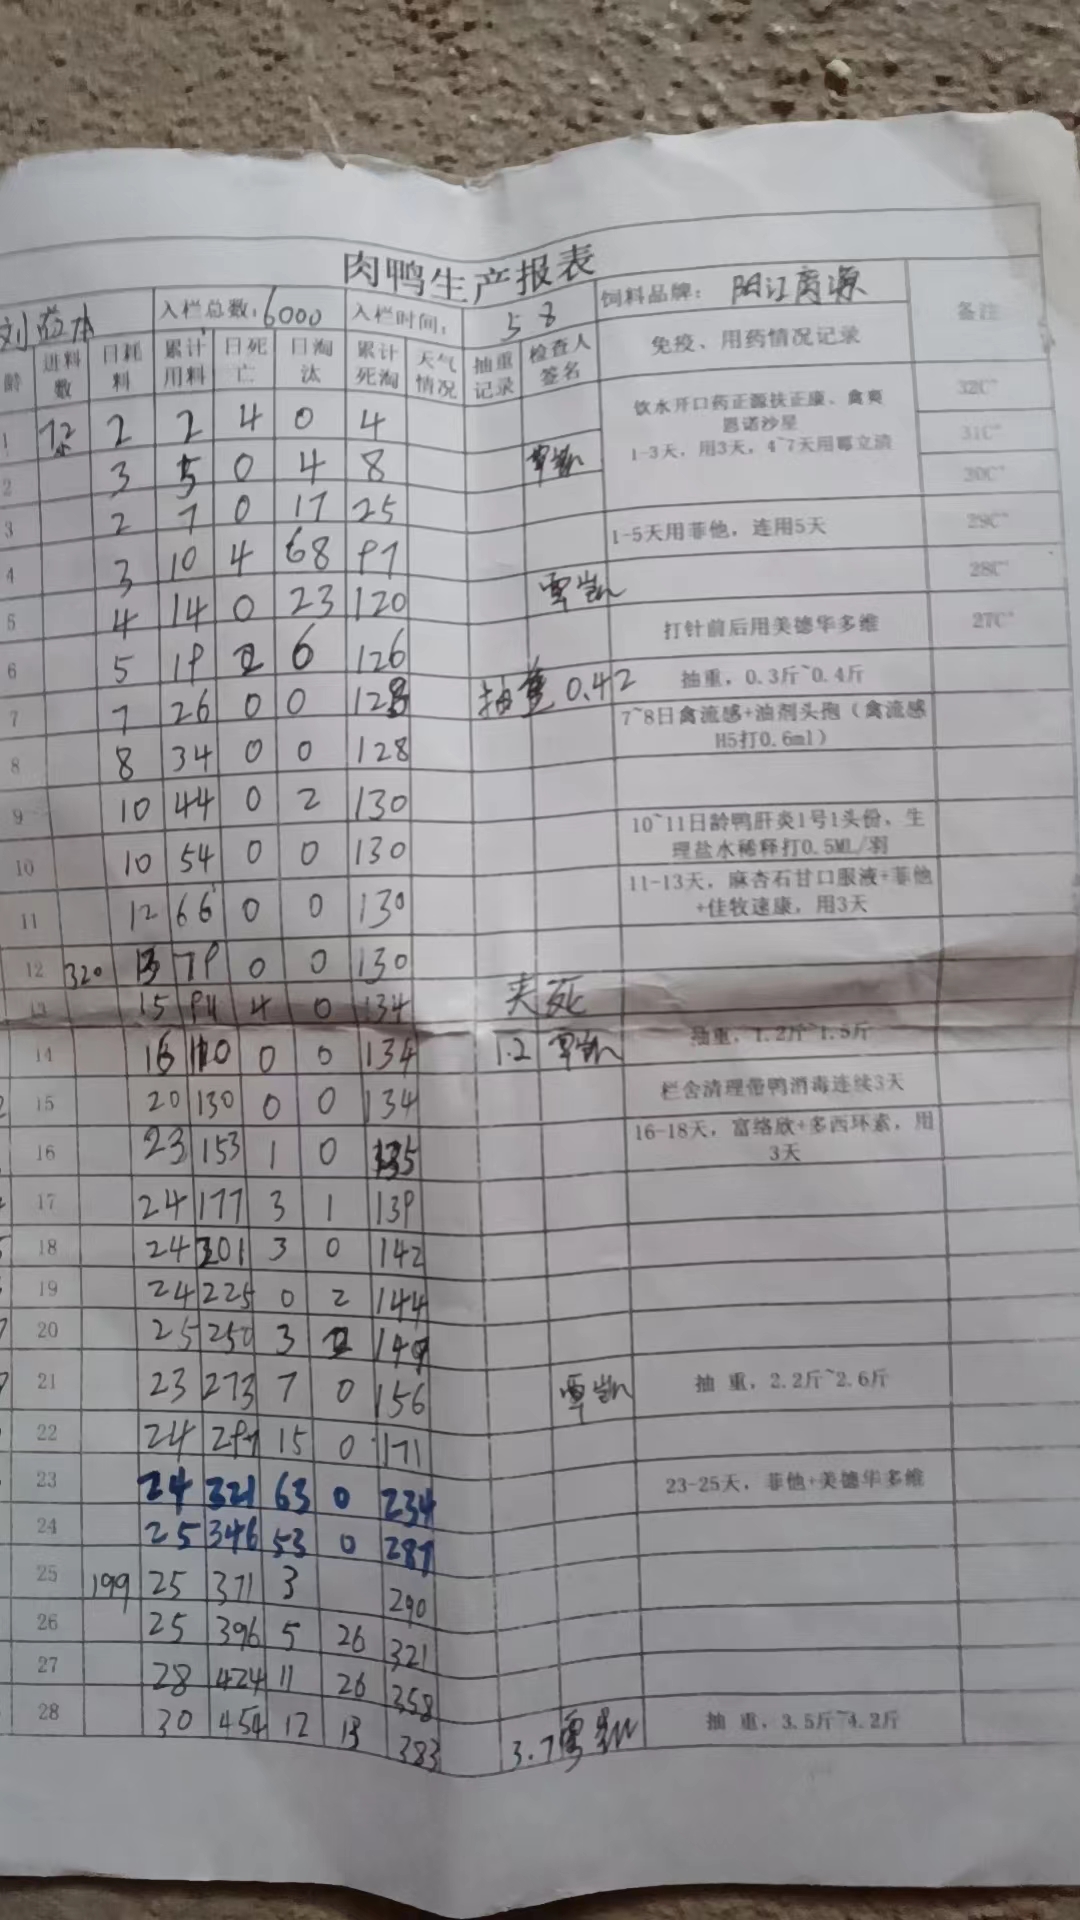 肉鸭生产报表
入栏总数：6000 入栏时间： 5 8 饲料品牌：阳江
龄 进料数 日耗料 累计用料 日死亡 日淘汰 累计死淘 天气情况 抽重记录 检查人签名 免疫、用药情况记录 备注
1 72 2 2 4 0 4 饮水开口药正源扶正康、禽爽恩诺沙星 32C°
1-3天，用3天，4~7天用霉立清 31C°
2 3 5 0 4 8 覃凯 30C°
3 2 7 0 17 25 1-5天用菲他，连用5天 29C°
4 3 10 4 68 97 28C°
5 4 14 0 23 120 覃凯 打针前后用美德华多维 27C°
6 5 19 2 6 126 抽重，0.3斤~0.4斤
7 7 26 0 0 128 抽重 0.42 7~8日禽流感+油剂头孢（禽流感H5打0.6ml）
8 8 34 0 0 128
9 10 44 0 2 130 10~11日龄鸭肝炎1号1头份，生理盐水稀释打0.5ML/羽
10 10 54 0 0 130 11-13天，麻杏石甘口服液+菲他+佳牧速康，用3天
11 12 66 0 0 130
12 320 13 79 0 0 130
13 15 94 4 0 134 夹死
14 16 110 0 0 134 1.2 覃凯 抽重，1.2斤~1.5斤
15 20 130 0 0 134 栏舍清理带鸭消毒连续3天
16 23 153 1 0 135 16-18天，富络欣+多西环素，用3天
17 24 177 3 1 139
18 24 201 3 0 142
19 24 225 0 2 144
20 25 250 3 2 149
21 23 273 7 0 156 覃凯 抽 重，2.2斤~2.6斤
22 24 297 15 0 171
23 24 321 63 0 234 23-25天，菲他+美德华多维
24 25 346 53 0 287
25 199 25 371 3 290
26 25 396 5 26 321
27 28 424 11 26 358
28 30 454 12 13 383 3.7 覃凯 抽 重，3.5斤~4.2斤